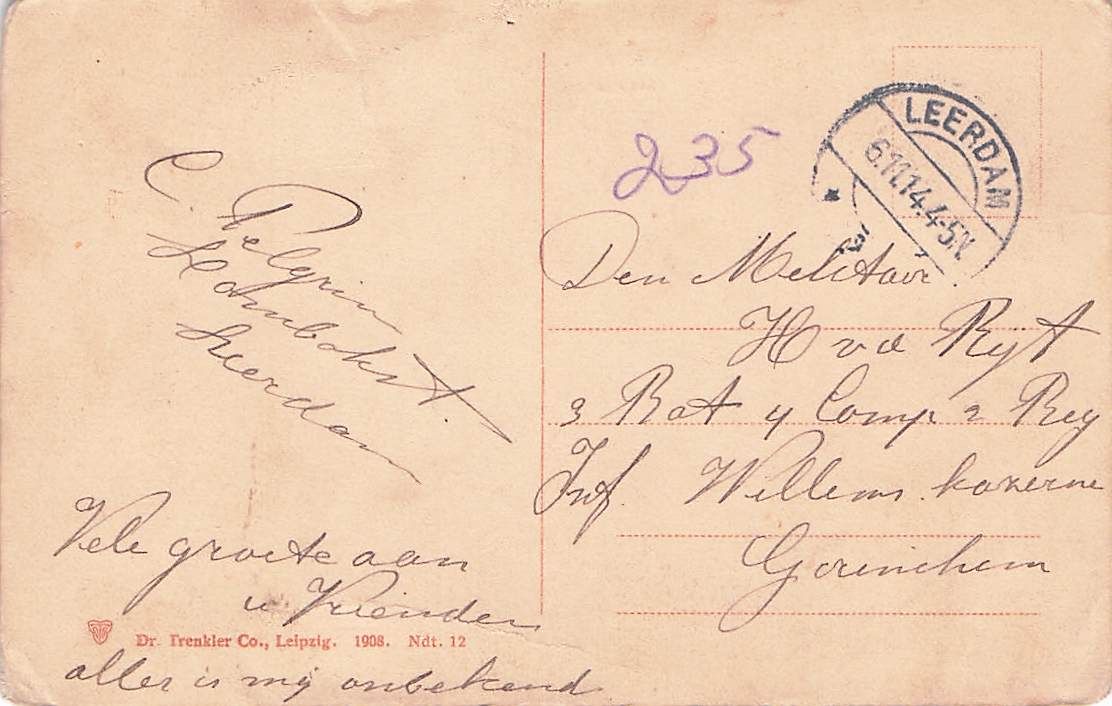 C. Pelgrim
Hoambokst.
Leerdam
Vele groete aan
u Vrienden
Dr. Trenkler Co., Leipzig. 1908. Ndt. 12
aller is mij onbekend
235
LEERDAM
6.11.14.4-5N
Den Melitair.
H v d Ryt
3 Bat 4 Comp 2 Reg
Inf. Willems kazerne
Gorinchem